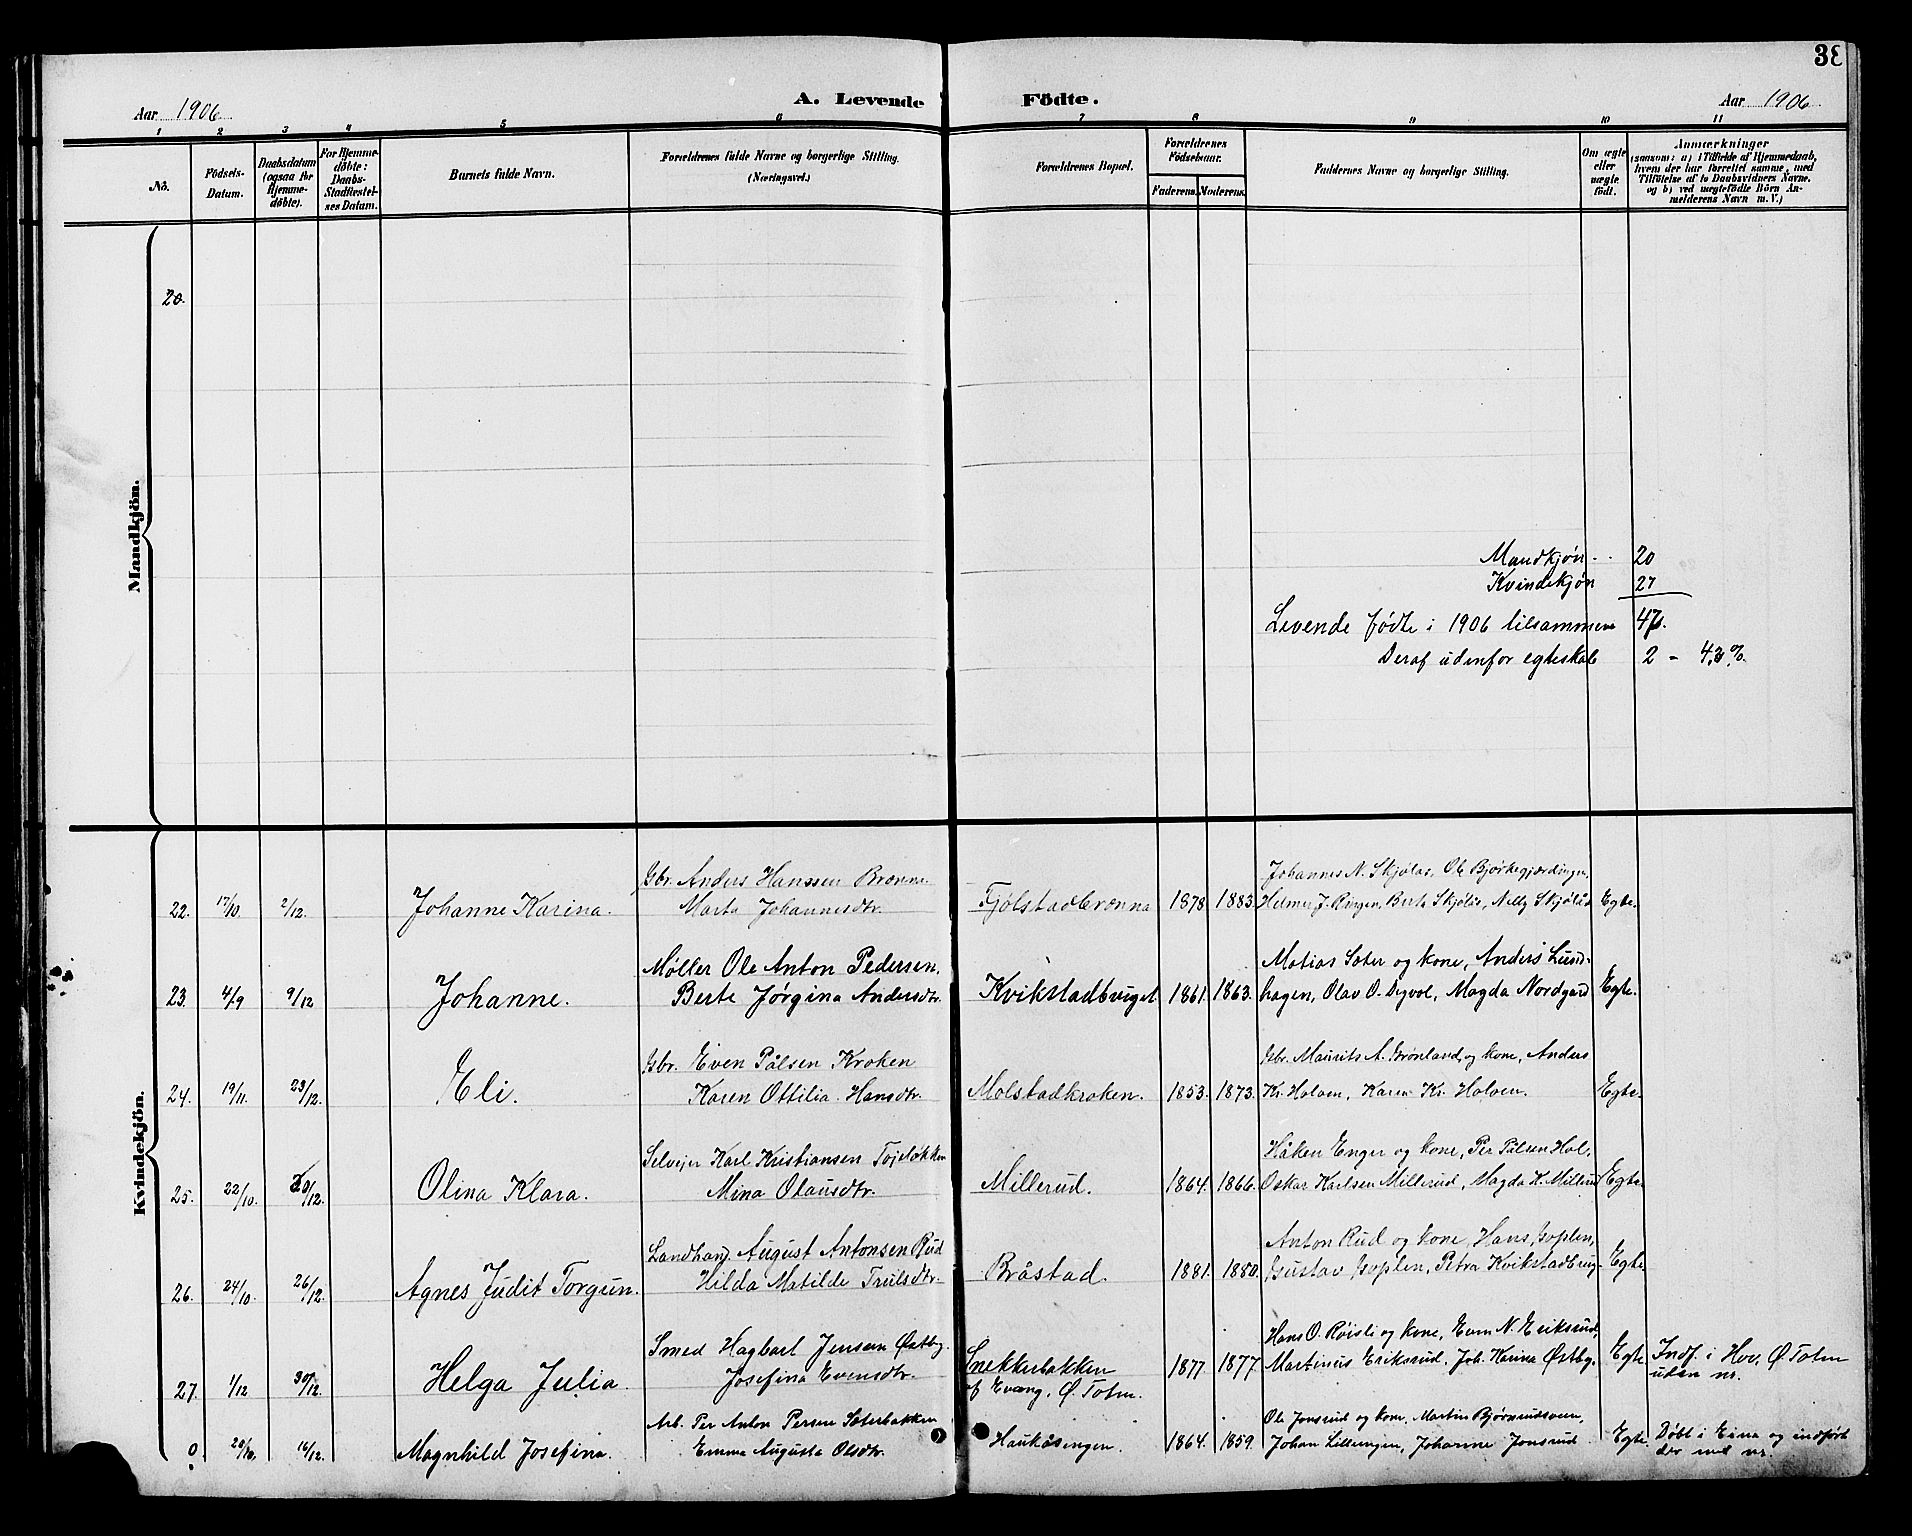 38
Aar 1906
A. Levende Födte.
Aar 1906
1 2 3 4 5 6 7 8 9 10 11
No.
Födsels-
Datum.
Daabsdatum
(ogsaa for
Hjemme-
døbte).
For Hjemme-
døbte:
Daabs-
Stadfæstel-
ses Datum.
Barnets fulde Navn.
Forældrenes fulde Navne og borgerlige Stilling.
(Næringsvei.)
Forældrenes Bopæl.
Forældrenes
Födselsaar.
Faderens. Moderens.
Faddernes Navne og borgerlige Stilling.
Om ægte
eller
uægte
født.
Anmærkninger
(saasom: a) i Tilfælde af Hjemmedaab,
hvem der har forrettet samme, med
Tilføielse af to Daabsvidners Navne.
og b) ved uægtefødte Börn An-
melderens Navn m. V.)
Mandkjön.
20.
Mandkjøn 20
Kvindekjøn 27
Levende fødte i 1906 tilsammen 47.
Deraf udenfor egteskab 2 - 4,3 %.
Kvindekjön.
Gbr. Anders Hanssen Brønne Johannes N. Skjølås, Ole Bjørkegjærdingen,
22. 17/10. 2/12. Johanne Karina. Marta Johannesdtr. Fjølstadbrønna 1878 1883 Helmer J. Ringen, Berte Skjølås, Nelly Skjølås Egte.
Møller Ole Anton Pedersen, Matias Sæter og kone, Anders Lund-
23. 4/9 9/12 Johanne. Berte Jørgina Andersdtr. Kvikstadbruget 1861. 1863. hagen, Olav O. Dyvol, Magda Nordgård Egte.
Gbr. Even Pålsen Kroken Gbr. Maurits A. Grønland, og kone, Anders
24. 19/11. 23/12. Eli. Karen Ottilia Hansdtr. Molstadkroken. 1853. 1873. Kr. Holven, Karen Kr. Holven. Egte.
Selvejer Karl Kristiansen Tøjeløkken Håken Enger og kone, Per Pålsen Hol,
25. 22/10. 20/12. Olina Klara. Mina Olausdtr. Millerud. 1864. 1866. Oskar Karlsen Millerud, Magda K. Millerud Egte.
Landhand. August Antonsen Rud Anton Rud og kone, Hans Goplen,
26. 24/10. 26/12. Agnes Judit Torgun. Hilda Matilde Trulsdtr. Bråstad. 1881. 1880. Gustav Goplen, Petra Kvikstadbrug. Egte.
Smed Hagbart Jensen Østby. Hans O. Røisli og kone, Even N. Eriksrud,
27. 1/12 30/12. Helga Julia. Josefina Evensdtr. Snekkerbakken 1877. 1877 Martinus Eriksrud, Joh. Karina Østby. Egte Indf. i Hov, Ø. Toten
af Evang, Ø. Toten. uden nr.
Arb. Per Anton Persen Sæterbakken Ole Jonsrud og kone, Martin Bjørnerudsveen,
0. 16/12. Magnhild Josefina. Emma Augusta Olsdtr. Haukåsengen. 1864. 1859. Johan Lilleengen, Johanne Jonsrud Egte. Døbt i Eina og indført
der med nr.